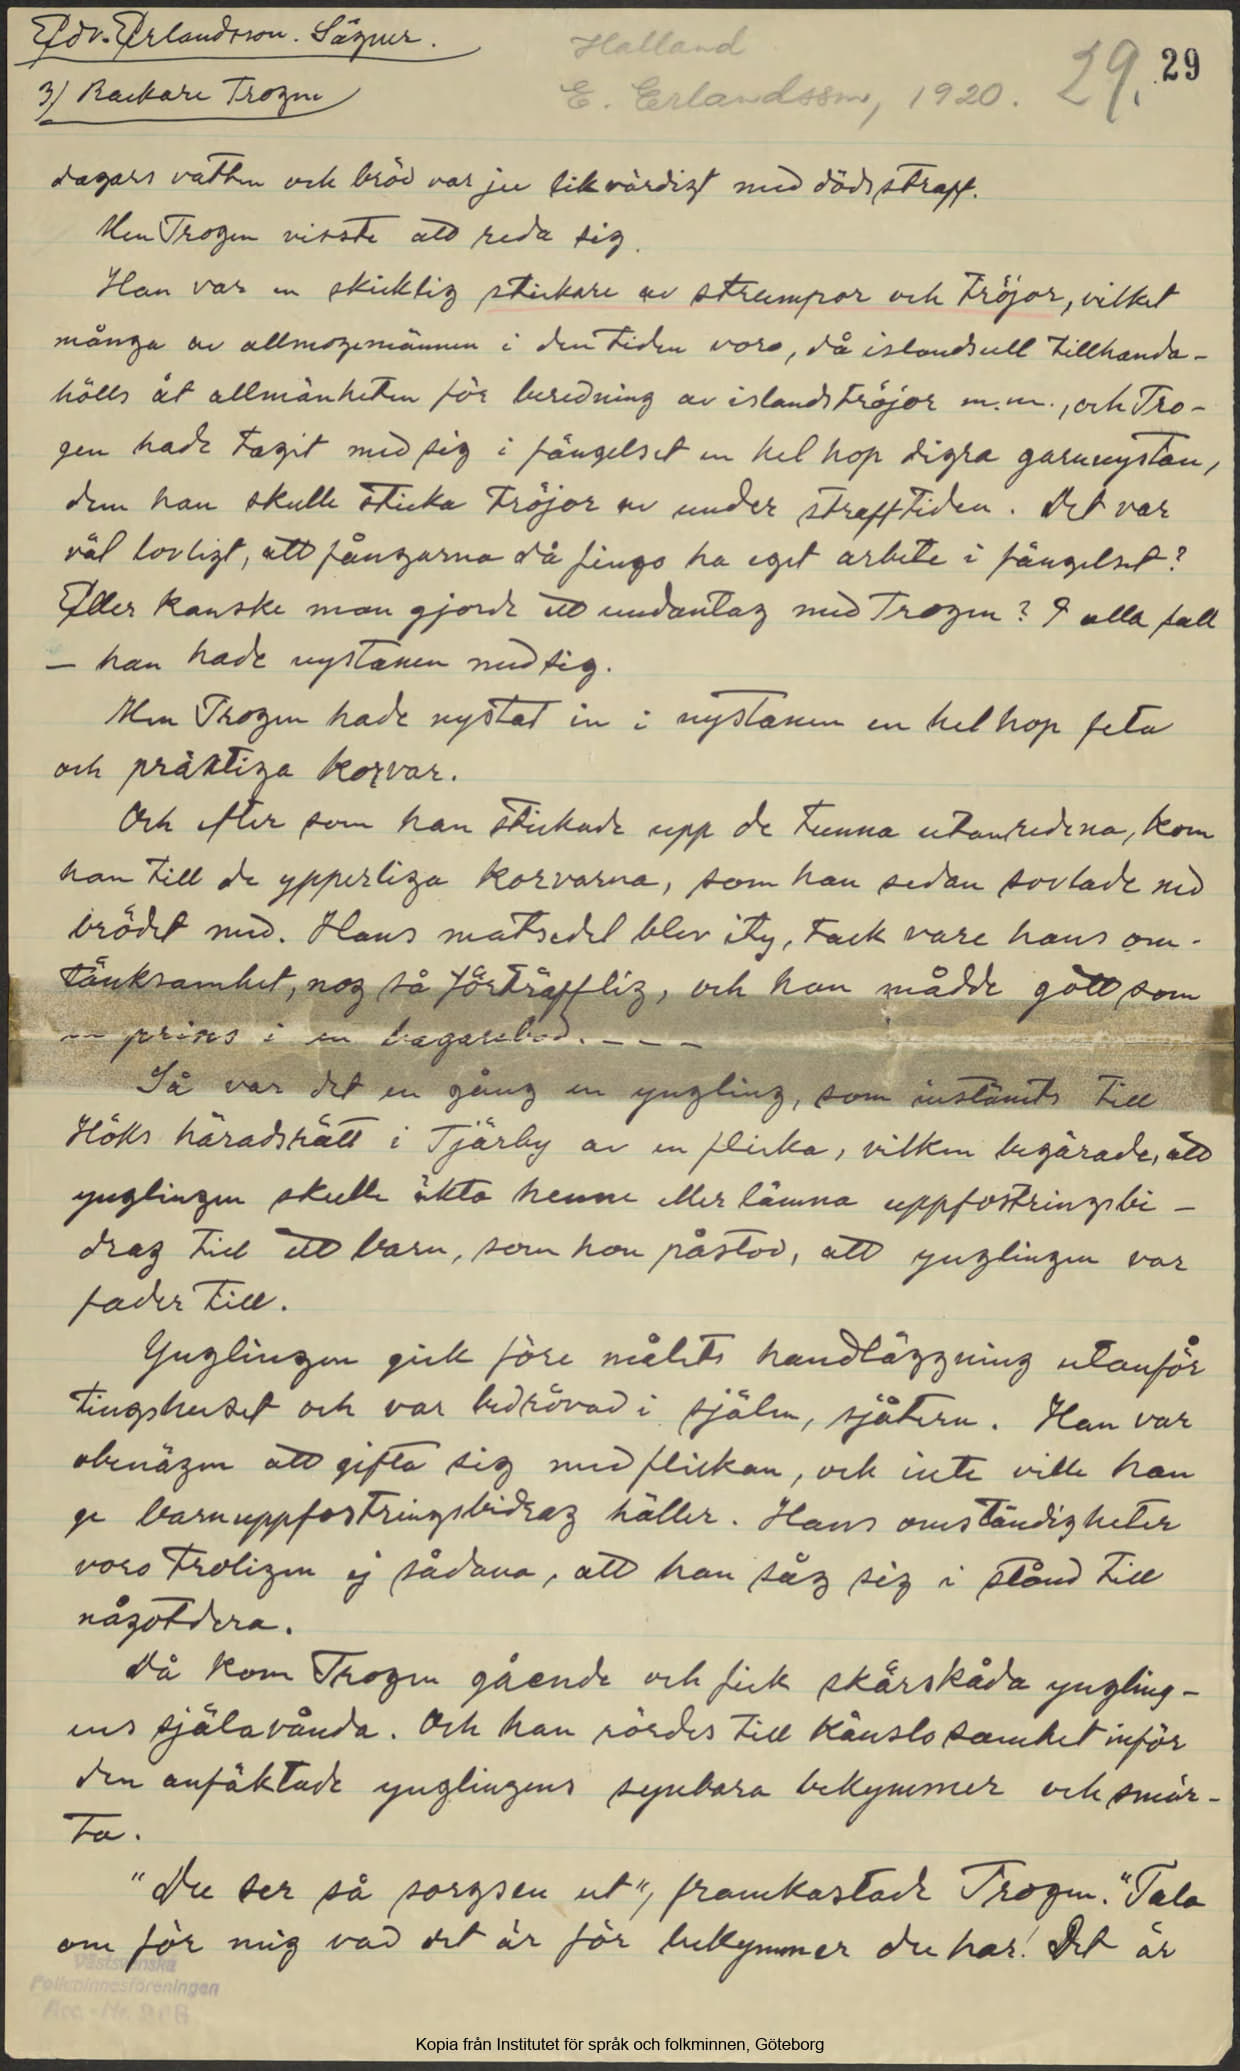 Edv. Erlandsson. Sägner.
3/ Rackare Trogen
Halland
E. Erlandsson, 1920.
29. 29
dagars vatten och bröd var ju likvärdigt med dödsstraff.
Men Trogen visste att reda sig.
Han var en skicklig stickare av strumpor och tröjor, vilket
många av allmogemännen i den tiden voro, då islandsull tillhanda-
hölls åt allmänheten för beredning av islandströjor m.m., och Tro-
gen hade tagit med sig i fängelset en hel hop digra garnnystan,
dem han skulle sticka tröjor av under strafftiden. Det var
väl lovligt, att fångarna då fingo ha eget arbete i fängelset?
Eller kanske man gjorde ett undantag med Trogen? I alla fall
— han hade nystanen med sig.
Men Trogen hade nystat in i nystanen en hel hop feta
och präktiga korvar.
Och efter som han stickade upp de tunna utanredena, kom
han till de ypperliga korvarna, som han sedan sovlade ned
brödet med. Hans matsedel blev ity, tack vare hans om-
tänksamhet, nog så förträfflig, och han mådde gott som
en prins i en bagarebod. – – –
Så var det en gång en yngling, som instämts till
Höks häradsrätt i Tjärby av en flicka, vilken begärade, att
ynglingen skulle äkta henne eller lämna uppfostringsbi-
drag till ett barn, som hon påstod, att ynglingen var
fader till.
Ynglingen gick före målets handläggning utanför
tingshuset och var bedrövad i själen, sjåtern. Han var
obenägen att gifta sig med flickan, och inte ville han
ge barnuppfostringsbidrag häller. Hans omständigheter
voro troligen ej sådana, att han såg sig i stånd till
någotdera.
Då kom Trogen gående och fick skärskåda yngling-
ens själavånda. Och han rördes till känslosamhet inför
den anfäktade ynglingens synbara bekymmer och smär-
ta.
"Du ser så sorgsen ut", framkastade Trogen. "Tala
om för mig vad det är för bekymmer du har! Det är
Västsvenska
Folkminnesföreningen
Acc.-Nr.
Kopia från Institutet för språk och folkminnen, Göteborg